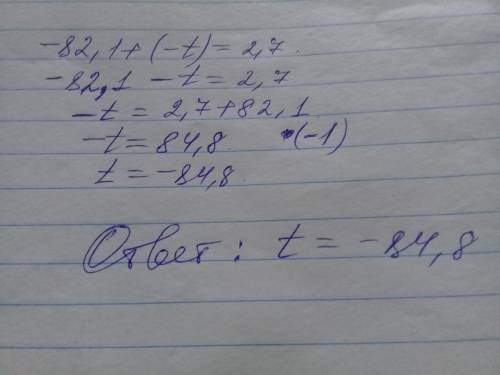 -82,1+(-t)=2,7.
-82,1 -t=2,7
-t=2,7+82,1.
-t=84,8. •(-1)
t=-84,8.
Ответ: t=-84,8